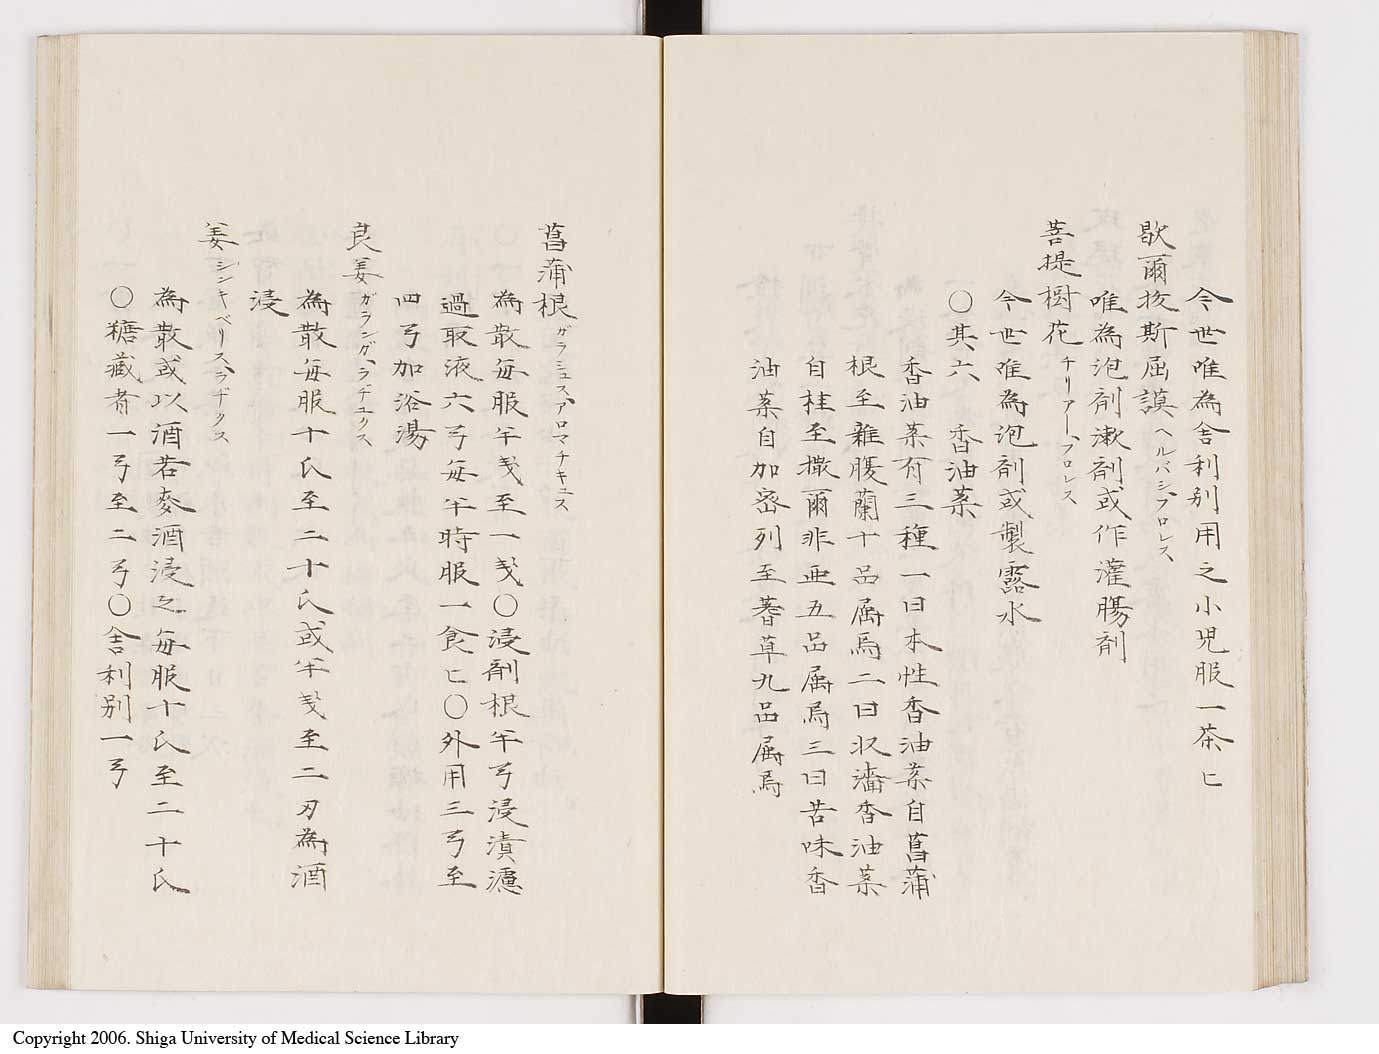 今世唯為舎利別用之小児服一茶匕
歇爾抜斯屈謨ヘルバシ、フロレス
唯為泡剤漱剤或作灌腸剤
菩提樹花チリアー、フロレス
今世唯為泡剤或製露水
〇其六 香油薬
香油薬有三種一曰本性香油薬自菖蒲
根至雑腹蘭十品属焉二曰収濇香油薬
自桂至撒爾非亜五品属焉三曰苦味香
油薬自加密列至蓍草九品属焉
菖蒲根ガラミュス、アロマチキュス
為散毎服半戔至一戔〇浸剤根半弓浸漬濾
過取液六弓毎半時服一食匕〇外用三弓至
四弓加浴湯
良姜ガランガ、ラヂユクス
為散毎服十氏至二十氏或半戔至二刃為酒
浸
姜ジンキベリス、ラヂクス
為散或以酒若麥酒浸之毎服十氏至二十氏
〇糖蔵者一弓至二弓〇舎利別一弓
Copyright 2006. Shiga University of Medical Science Library